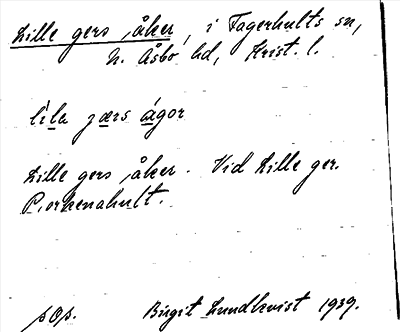 Lille gers åker, i Fagerhults sn,
N. Åsbo hd, Krist. l.
lila jærs ágor
Lille gers åker. Vid Lille ger.
Porkenahult.
pOp. Birgit Lundkvist 1939.